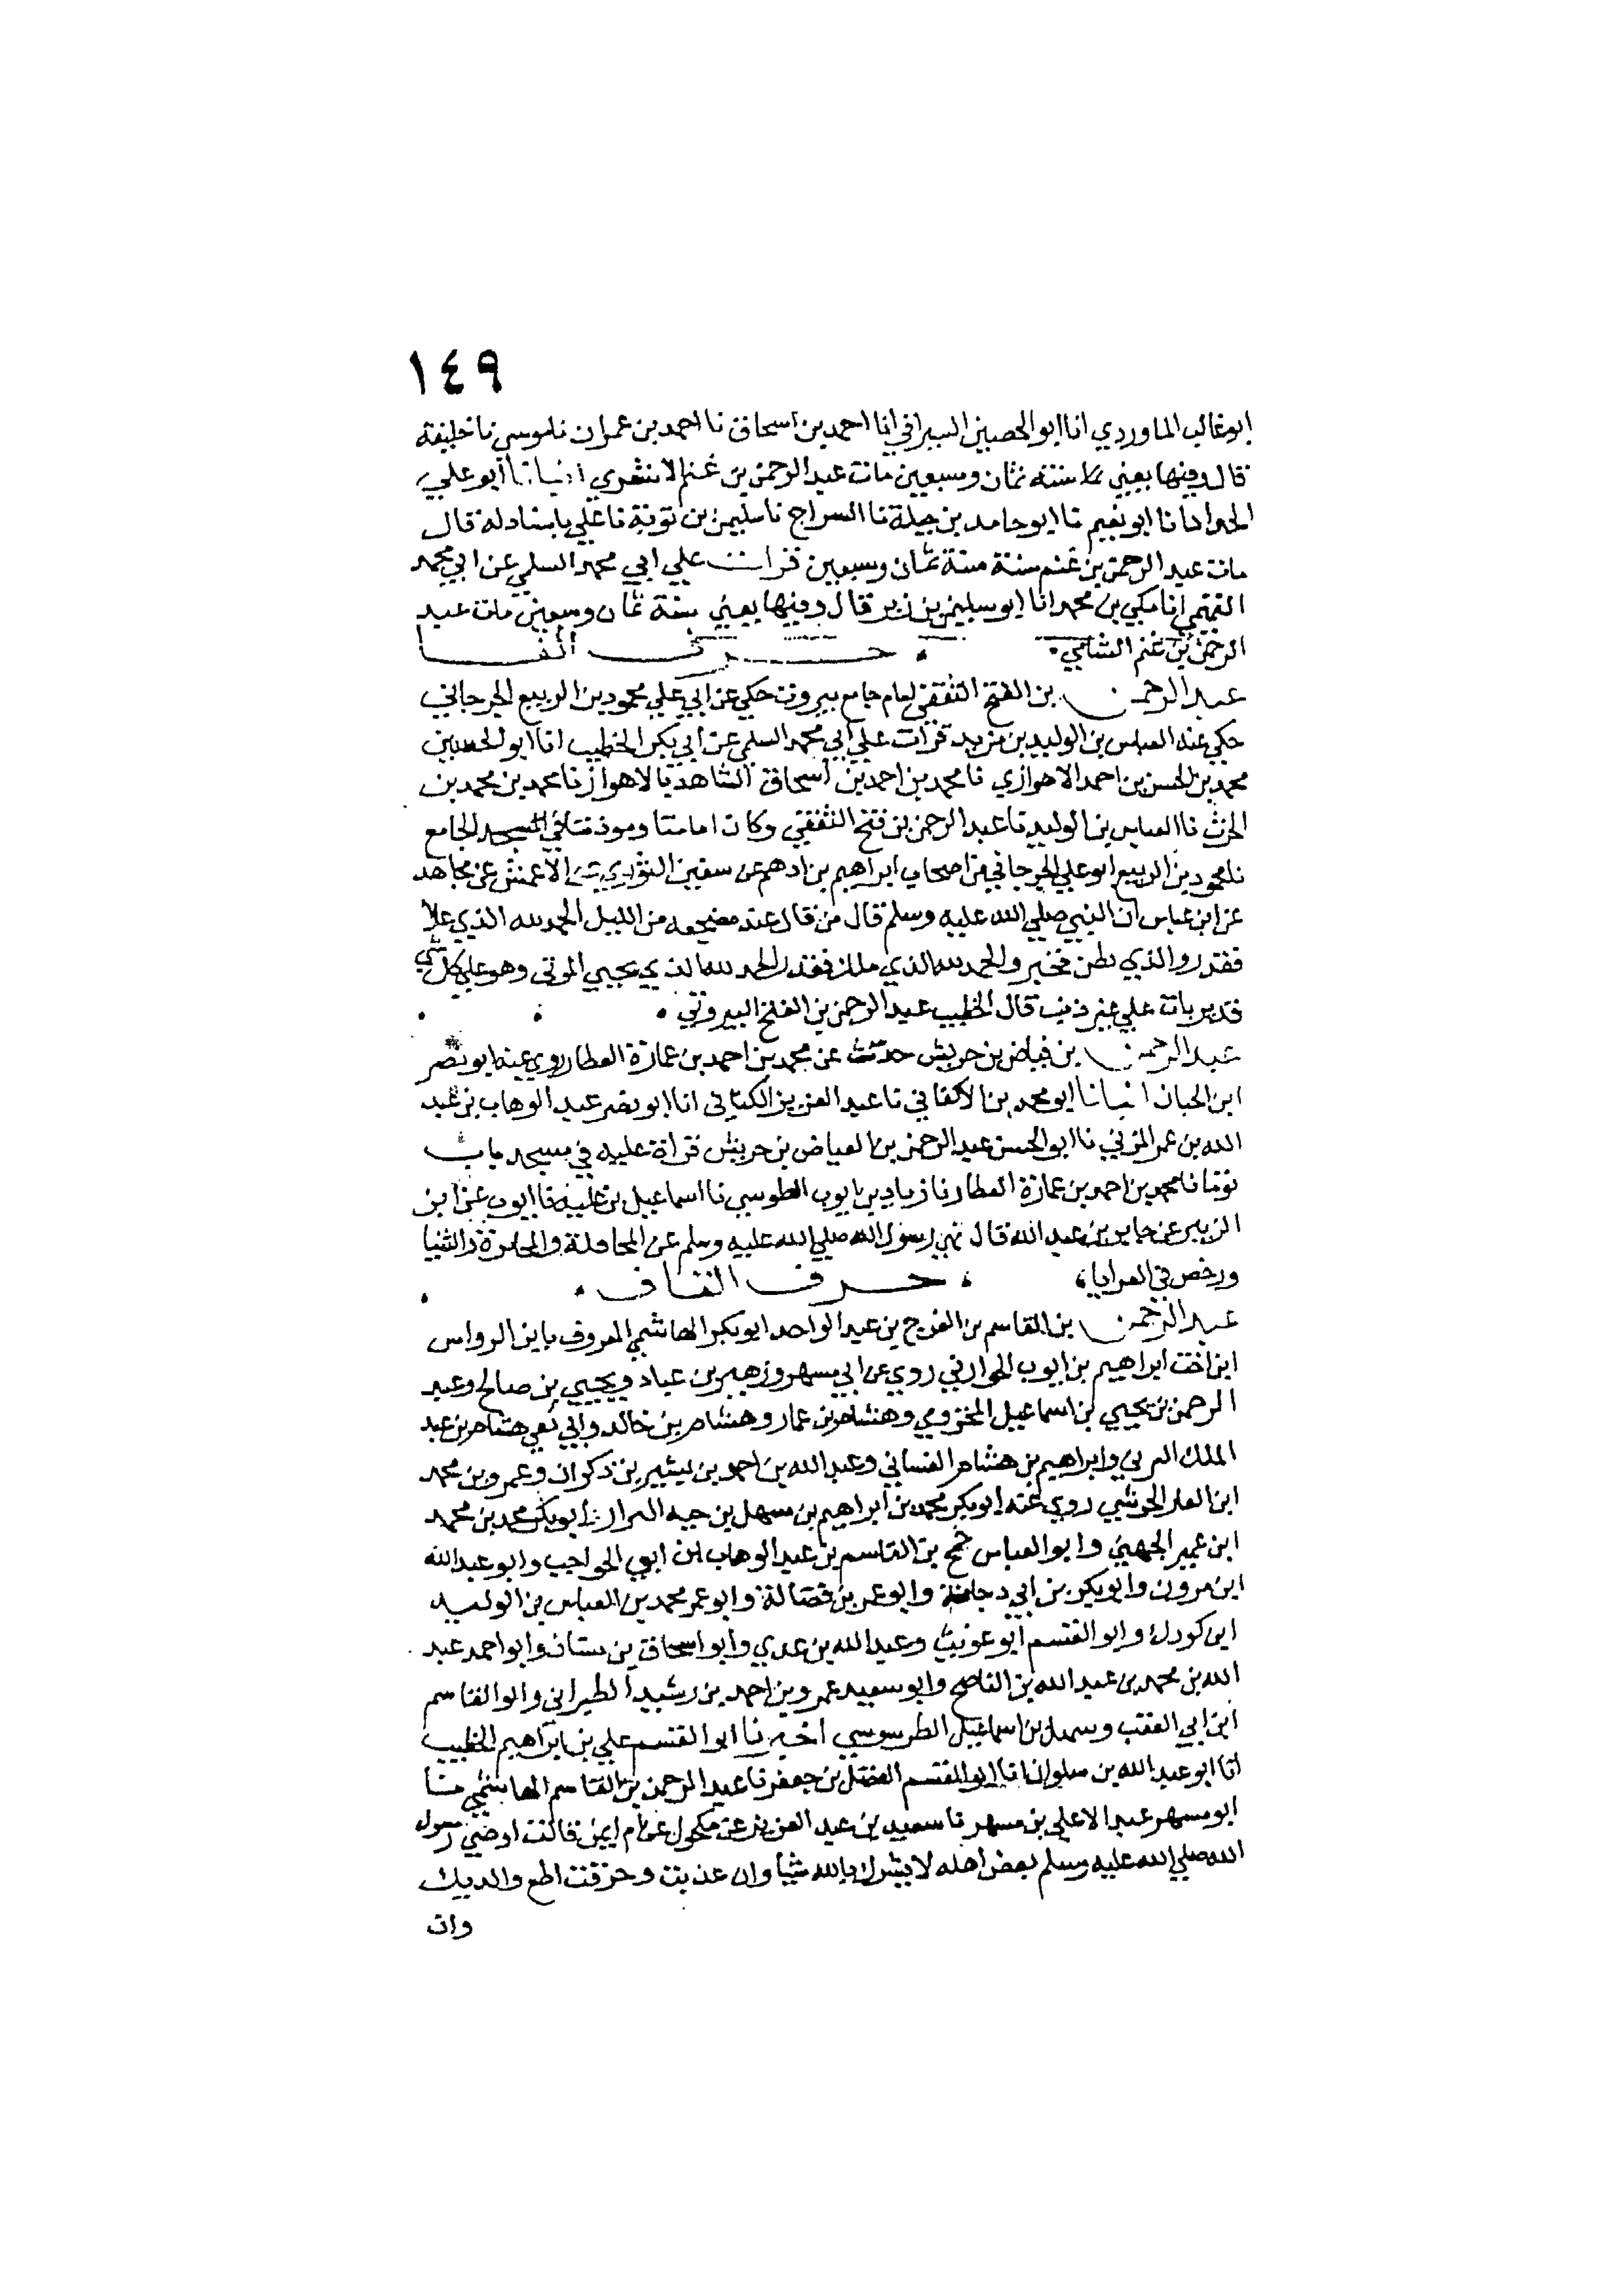 ١٤٩
ابو غالب الماوردي انا ابو الحصين السيرافي انا احمد بن اسحاق نا احمد بن عمران نا موسي نا خليفة
قال وفيها يعني سنة ثمان وسبعين مات عبد الرحمن بن غنم الاشعري انبانا ابو علي
الحداد انا ابو نعيم نا ابو حامد بن جبلة نا السراج نا سليمن بن توبة نا علي باسناد له قال
مات عبد الرحمن بن غنم سنة سنة ثمان وسبعين قرات علي ابي محمد السلمي عن ابي محمد
التميمي انا مكي بن محمد انا ابو سليمن بن زبر قال وفيها يعني سنة ثمان وسبعين مات عبد
الرحمن بن غنم الشامي . حرف الفا
عبد الرحمن بن الفتح الثقفي امام جامع بيروت حكي عن ابي علي محمود بن الربيع الجرجاني
حكي عنه العباس بن الوليد بن مزيد قرات علي ابي محمد السلمي عن ابي بكر الخطيب انا ابو الحسين
محمد بن الحسن بن احمد الاهوازي نا محمد بن احمد بن اسحاق الشاهد بالاهواز نا محمد بن محمد بن
الحرث نا العباس بن الوليد نا عبد الرحمن بن فتح الثقفي وكان امامنا وموذننا في المسجد الجامع
نا محمود بن الربيع ابو علي الجرجاني من اصحاب ابراهيم بن ادهم عن سفين الثوري عن الاعمش عن مجاهد
عن ابن عباس ان النبي صلي الله عليه وسلم قال من قال عند مضجعه من الليل الحمد لله الذي علا
فقدر والذي بطن فخبر والحمد لله الذي ملك فقدر الحمد لله الذي يحيي الموتي وهو علي كل شي
قدير بات علي غير ذنب قال الخطيب عبد الرحمن بن الفتح البيروتي .
عبد الرحمن بن فياض بن حريش حدث عن محمد بن احمد بن عمارة العطار روي عنه ابو نصر
ابن الحبان انبانا ابو محمد بن الاكفاني نا عبد العزيز الكتاني انا ابو نصر عبد الوهاب بن عبد
الله بن عمر المزني نا ابو الحسن عبد الرحمن بن الفياض بن حريش قراة عليه في مسجد باب
توما نا محمد بن احمد بن عمارة العطار نا زياد بن ايوب الطوسي نا اسماعيل بن علية نا ايوب عن ابن
الزبير عن جابر بن عبد الله قال نهي رسول الله صلي الله عليه وسلم عن المحاقلة والمخابرة والثنيا
ورخص في العرايا . حرف القاف .
عبد الرحمن بن القاسم بن الفرج بن عبد الواحد ابو بكر الهاشمي المعروف بابن الرواس
ابن اخت ابراهيم بن ايوب الحوراني روي عن ابي مسهر وزهير بن عباد ويحيي بن صالح وعبد
الرحمن بن يحيي بن اسماعيل المخزومي وهشام بن عمار وهشام بن خالد وابي تقي هشام بن عبد
الملك وابراهيم بن هشام الغساني وعبد الله بن احمد بن بشير بن ذكوان وعمرو بن محمد
ابن الجرشي روي عنه ابو بكر محمد بن ابراهيم بن سهل بن حيه البزار وابو بكر محمد بن محمد
ابن عمير الجهني وابو العباس جمح بن القاسم بن عبد الوهاب ابن ابي الحواجب وابو عبد الله
ابن مرون وابو بكر بن ابي دجانة وابو عمر بن فضالة وابو عمر محمد بن العباس بن الوليد
ابن كودك وابو القسم وعبد الله بن عدي وابو اسحاق بن سنان وابو احمد عبد
الله بن محمد بن عبد الله بن الناصح وابو سعيد عمرو بن احمد بن رشيد الطبراني وابو القاسم
ابن ابي العقب وسهل بن اسماعيل الطرسوسي اخبرنا ابو القسم علي بن ابراهيم الخطيب
انا ابو عبد الله بن سلوان انا ابو القسم الفضل بن جعفر نا عبد الرحمن بن القاسم الهاشمي نا
ابو مسهر عبد الاعلي بن مسهر نا سعيد بن عبد العزيز عن مكحول عن ام ايمن قالت اوصي رسول
الله صلي الله عليه وسلم بعض اهله لا يشرك بالله شيا وان عذبت وحرقت اطع والديك
وان